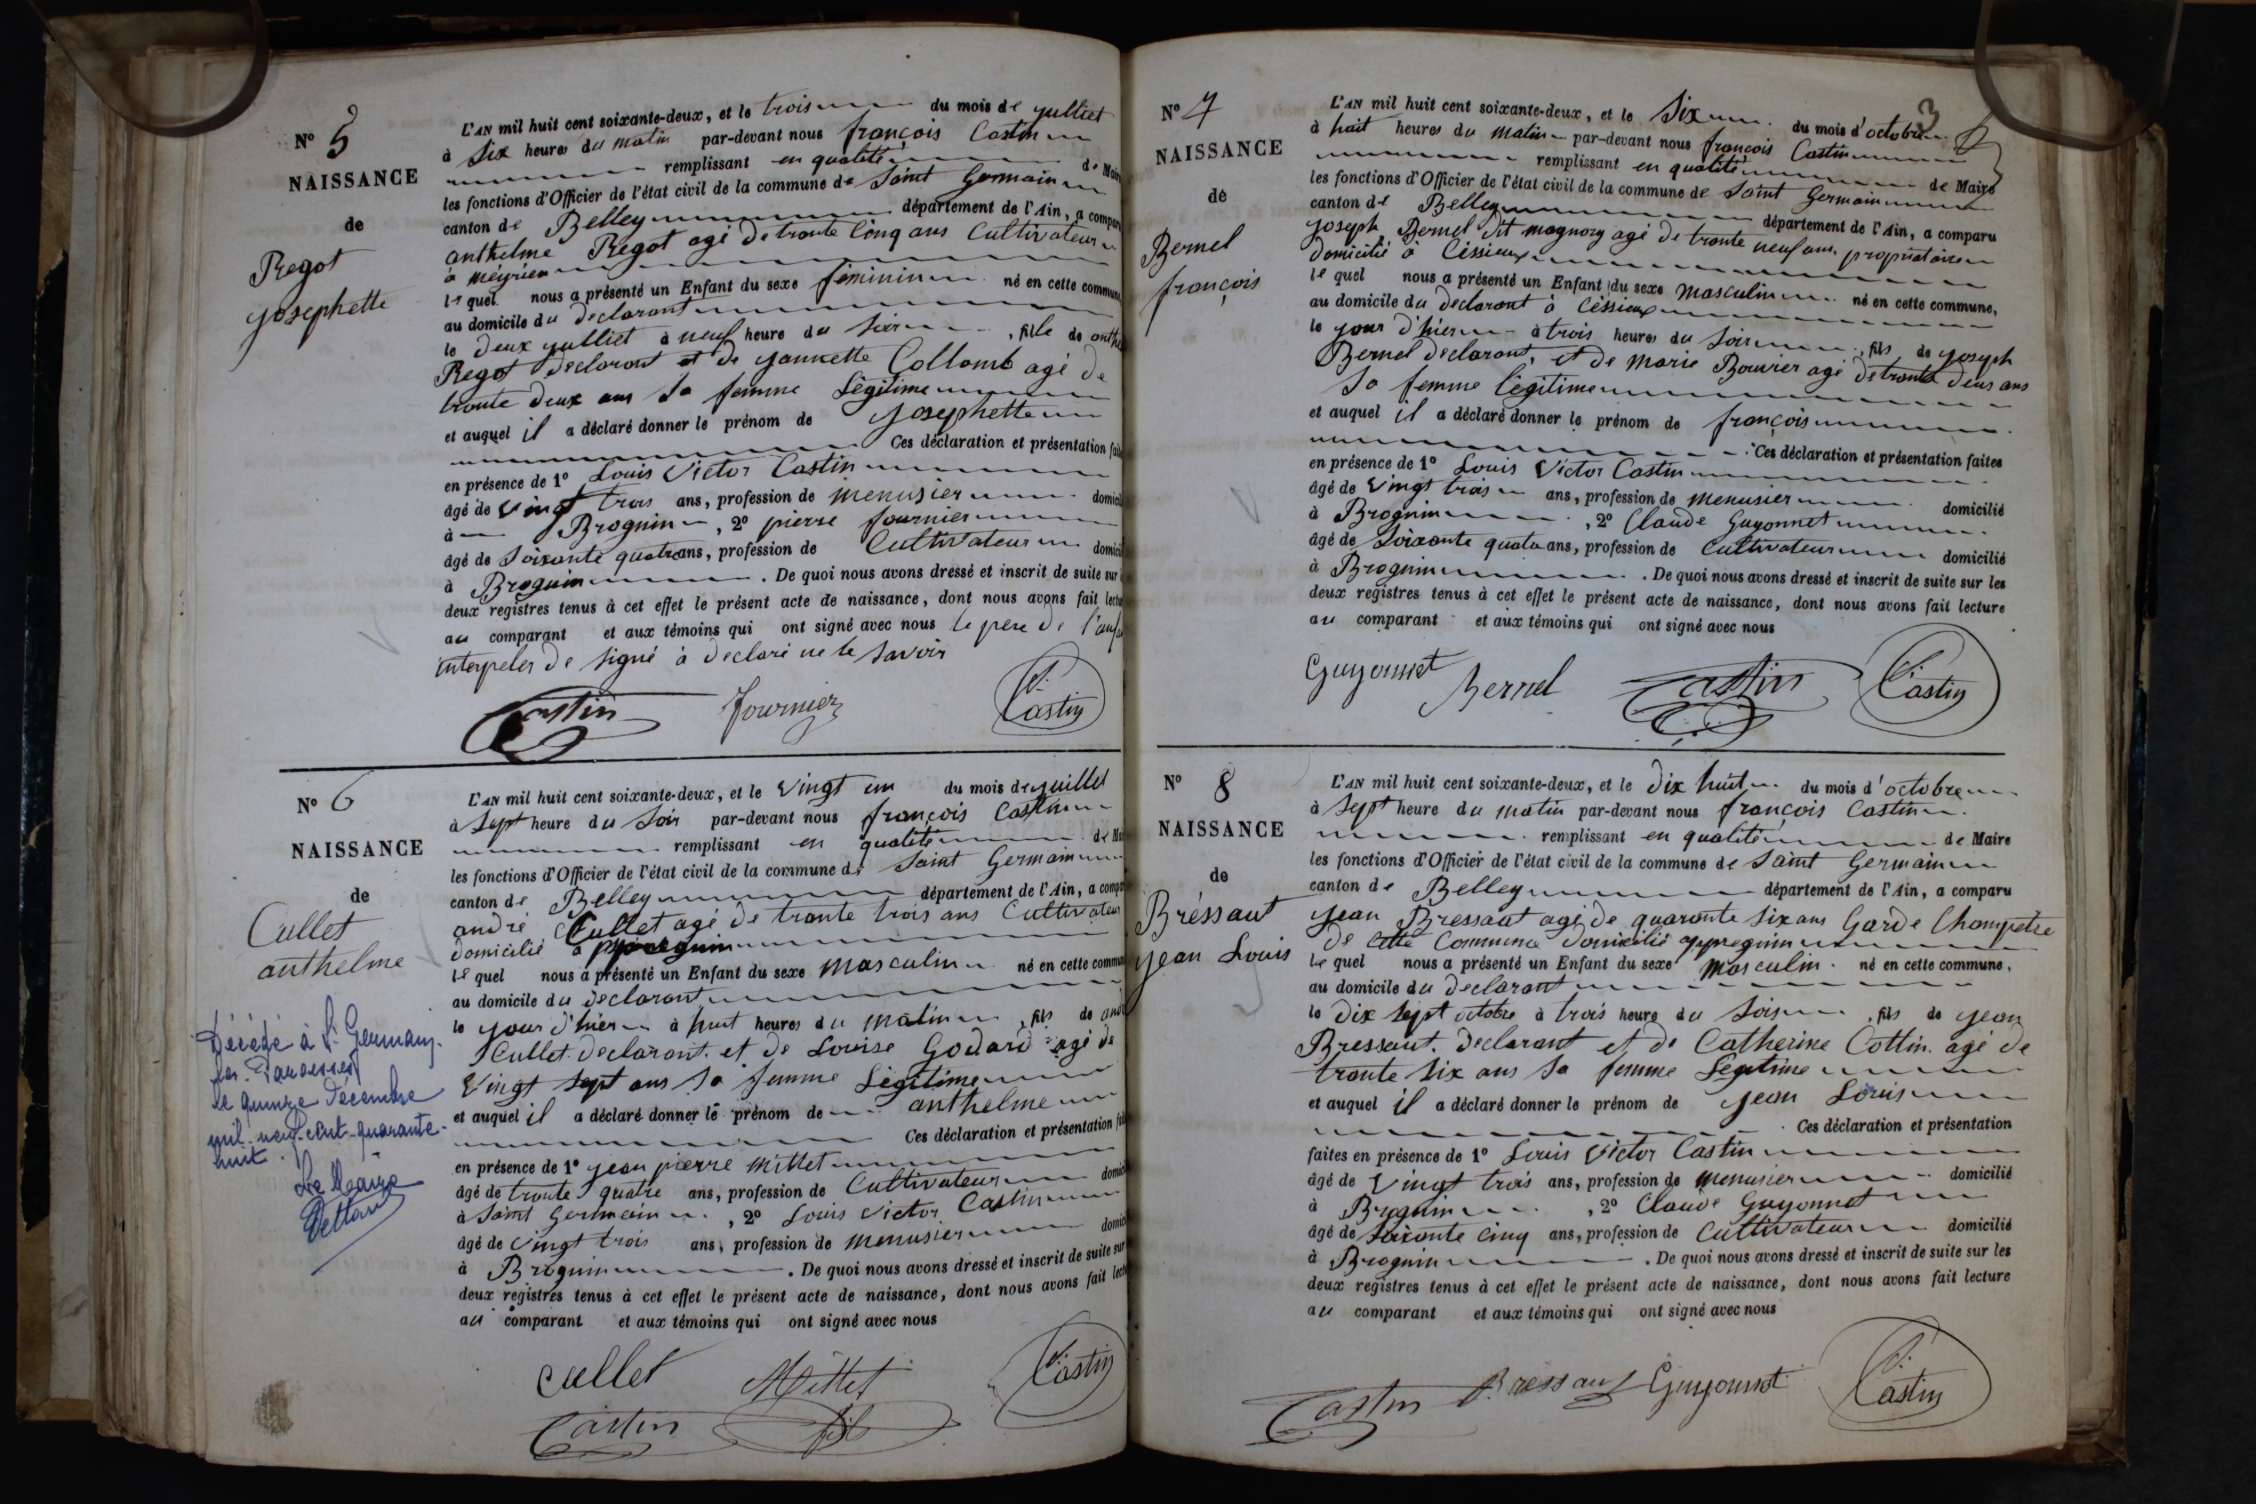 N° 5
NAISSANCE
de
Regot
josephette
L'AN mil huit cent soixante-deux, et le trois du mois de julliet
à six heures du matin par-devant nous françois Castin
remplissant en qualité de Maire
les fonctions d'Officier de l'état civil de la commune de Saint Germain
canton de Belley département de l'Ain, a compar
anthelme Regot agé de trente cinq ans Cultivateur
à meyrieu
le quel nous a présenté un Enfant du sexe féminin né en cette commune,
au domicile du declarant
le deux julliet à neuf heure du soir, fille de anthe
Regot declarant et de jannette Collomb agé de
trente deux ans sa femme Légitime
et auquel il a déclaré donner le prénom de josephette
Ces déclaration et présentation fait
en présence de 1° Louis Victor Castin
âgé de vingt trois ans, profession de menusier domicil
à Brognin, 2° pierre fournier
âgé de soixante quatre ans, profession de Cultivateur domicil
à Brognin. De quoi nous avons dressé et inscrit de suite sur
deux registres tenus à cet effet le présent acte de naissance, dont nous avons fait lectur
au comparant et aux témoins qui ont signé avec nous le père de l'anfa
interpeler de signé à declaré ne le savoir
Castin Fournier V. Castin
N° 6
NAISSANCE
de
Cullet
anthelme
Décédé à St Germain
les-Paroisses
le quinze Décembre
mil-neuf-cent-quarante-
huit.
Le Maire
L'AN mil huit cent soixante-deux, et le vingt un du mois de juillet
à sept heure du soir par-devant nous françois Castin
remplissant en qualité de Mai
les fonctions d'Officier de l'état civil de la commune de Saint Germain
canton de Belley département de l'Ain, a compar
andré Cullet agé de trente trois ans Cultivateur
domicilié à
le quel nous a présenté un Enfant du sexe masculin né en cette commun
au domicile du declarant
le jour d'hier à huit heures du matin, fils de and
Cullet declarant et de Louise Godard agé de
vingt sept ans sa femme Légitime
et auquel il a déclaré donner le prénom de anthelme
Ces déclaration et présentation fai
en présence de 1° jean pierre Millet
âgé de trente quatre ans, profession de Cultivateur domici
à Saint Germain, 2° Louis Victor Castin
âgé de vingt trois ans, profession de menusier domici
à Brognin. De quoi nous avons dressé et inscrit de suite sur
deux registres tenus à cet effet le présent acte de naissance, dont nous avons fait lect
au comparant et aux témoins qui ont signé avec nous
Cullet Millet V. Castin
Castin fils
3
N° 7
NAISSANCE
de
Bernel
françois
L'AN mil huit cent soixante-deux, et le six du mois d'octobre
à huit heures du matin par-devant nous françois Castin
remplissant en qualité de Maire
les fonctions d'Officier de l'état civil de la commune de Saint Germain
canton de Belley département de l'Ain, a comparu
joseph Bernel dit magnory agé de trente neuf ans propriétaire
domicilié à Céssieux
le quel nous a présenté un Enfant du sexe masculin né en cette commune,
au domicile du declarant à Céssieux
le jour d'hier à trois heures du soir, fils de joseph
Bernel declarant, et de marie Bouvier agé de trente deux ans
sa femme légitime
et auquel il a déclaré donner le prénom de françois
Ces déclaration et présentation faites
en présence de 1° Louis Victor Castin
âgé de vingt trois ans, profession de menusier domicilié
à Brognin, 2° Claude Guyonnet
âgé de soixante quatre ans, profession de Cultivateur domicilié
à Brognin. De quoi nous avons dressé et inscrit de suite sur les
deux registres tenus à cet effet le présent acte de naissance, dont nous avons fait lecture
au comparant et aux témoins qui ont signé avec nous
Guyonnet Bernel Castin V. Castin
N° 8
NAISSANCE
de
Bressaut
jean Louis
L'AN mil huit cent soixante-deux, et le dix huit du mois d'octobre
à sept heure du matin par-devant nous françois Castin
remplissant en qualité de Maire
les fonctions d'Officier de l'état civil de la commune de Saint Germain
canton de Belley département de l'Ain, a comparu
jean Bressaut agé de quarante six ans Garde Champetre
de cette Commune domicilié
le quel nous a présenté un Enfant du sexe masculin né en cette commune,
au domicile du declarant
le dix sept octobre à trois heure du soir, fils de jean
Bressaut declarant et de Catherine Cottin agé de
trente six ans sa femme Légitime
et auquel il a déclaré donner le prénom de jean Louis
Ces déclaration et présentation
faites en présence de 1° Louis Victor Castin
âgé de vingt trois ans, profession de menusier domicilié
à Brognin, 2° Claude Guyonnet
âgé de soixante cinq ans, profession de Cultivateur domicilié
à Brognin. De quoi nous avons dressé et inscrit de suite sur les
deux registres tenus à cet effet le présent acte de naissance, dont nous avons fait lecture
au comparant et aux témoins qui ont signé avec nous
Castin Bressaut Guyonnet V. Castin